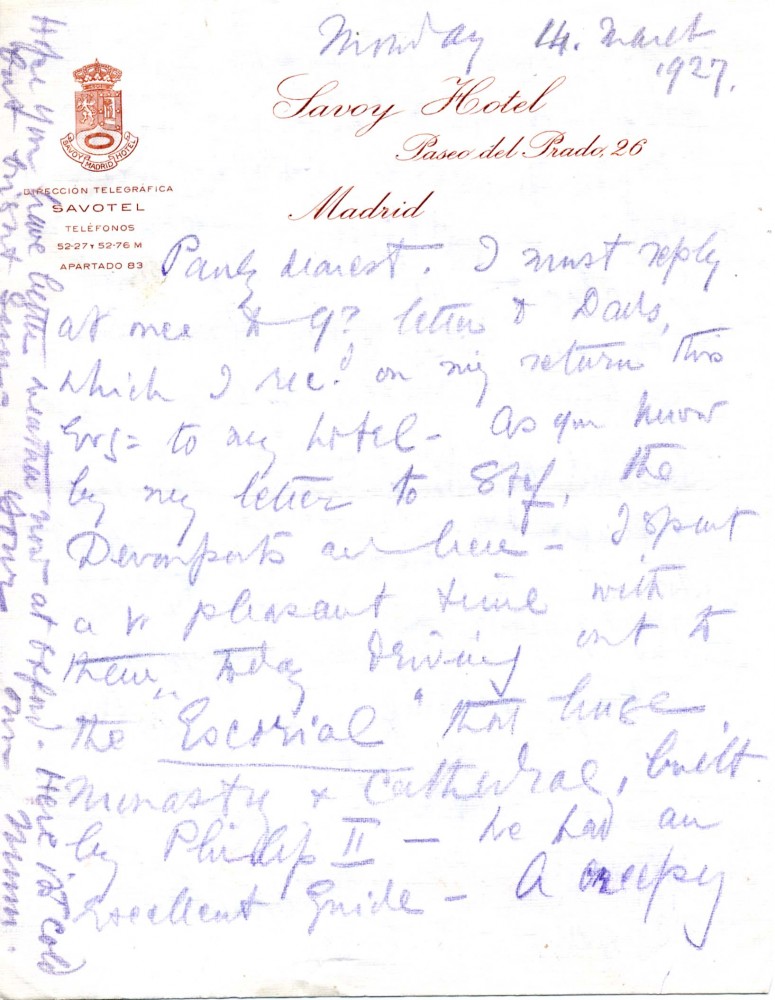 Monday 14. March
1927.
SAVOY
MADRID HOTEL
Savoy Hotel
Paseo del Prado, 26
Madrid
DIRECCIÓN TELEGRÁFICA
SAVOTEL
TELÉFONOS
52-27 Y 52-76 M
APARTADO 83
dearest. I must reply
at once to letter & Dad's,
which I rec.d on my return this
Evg= to my hotel - As you know
by my letter to the
Devonports are here - I spent
a v pleasant time with
them today driving out to
the "Escorial" that huge
Monastry & Cathedral, built
by Phillip II - we had an
Excellent Guide - A creepy
Hope you have better weather now at Oxford. Here it is cold
but bright
Your own Mum.